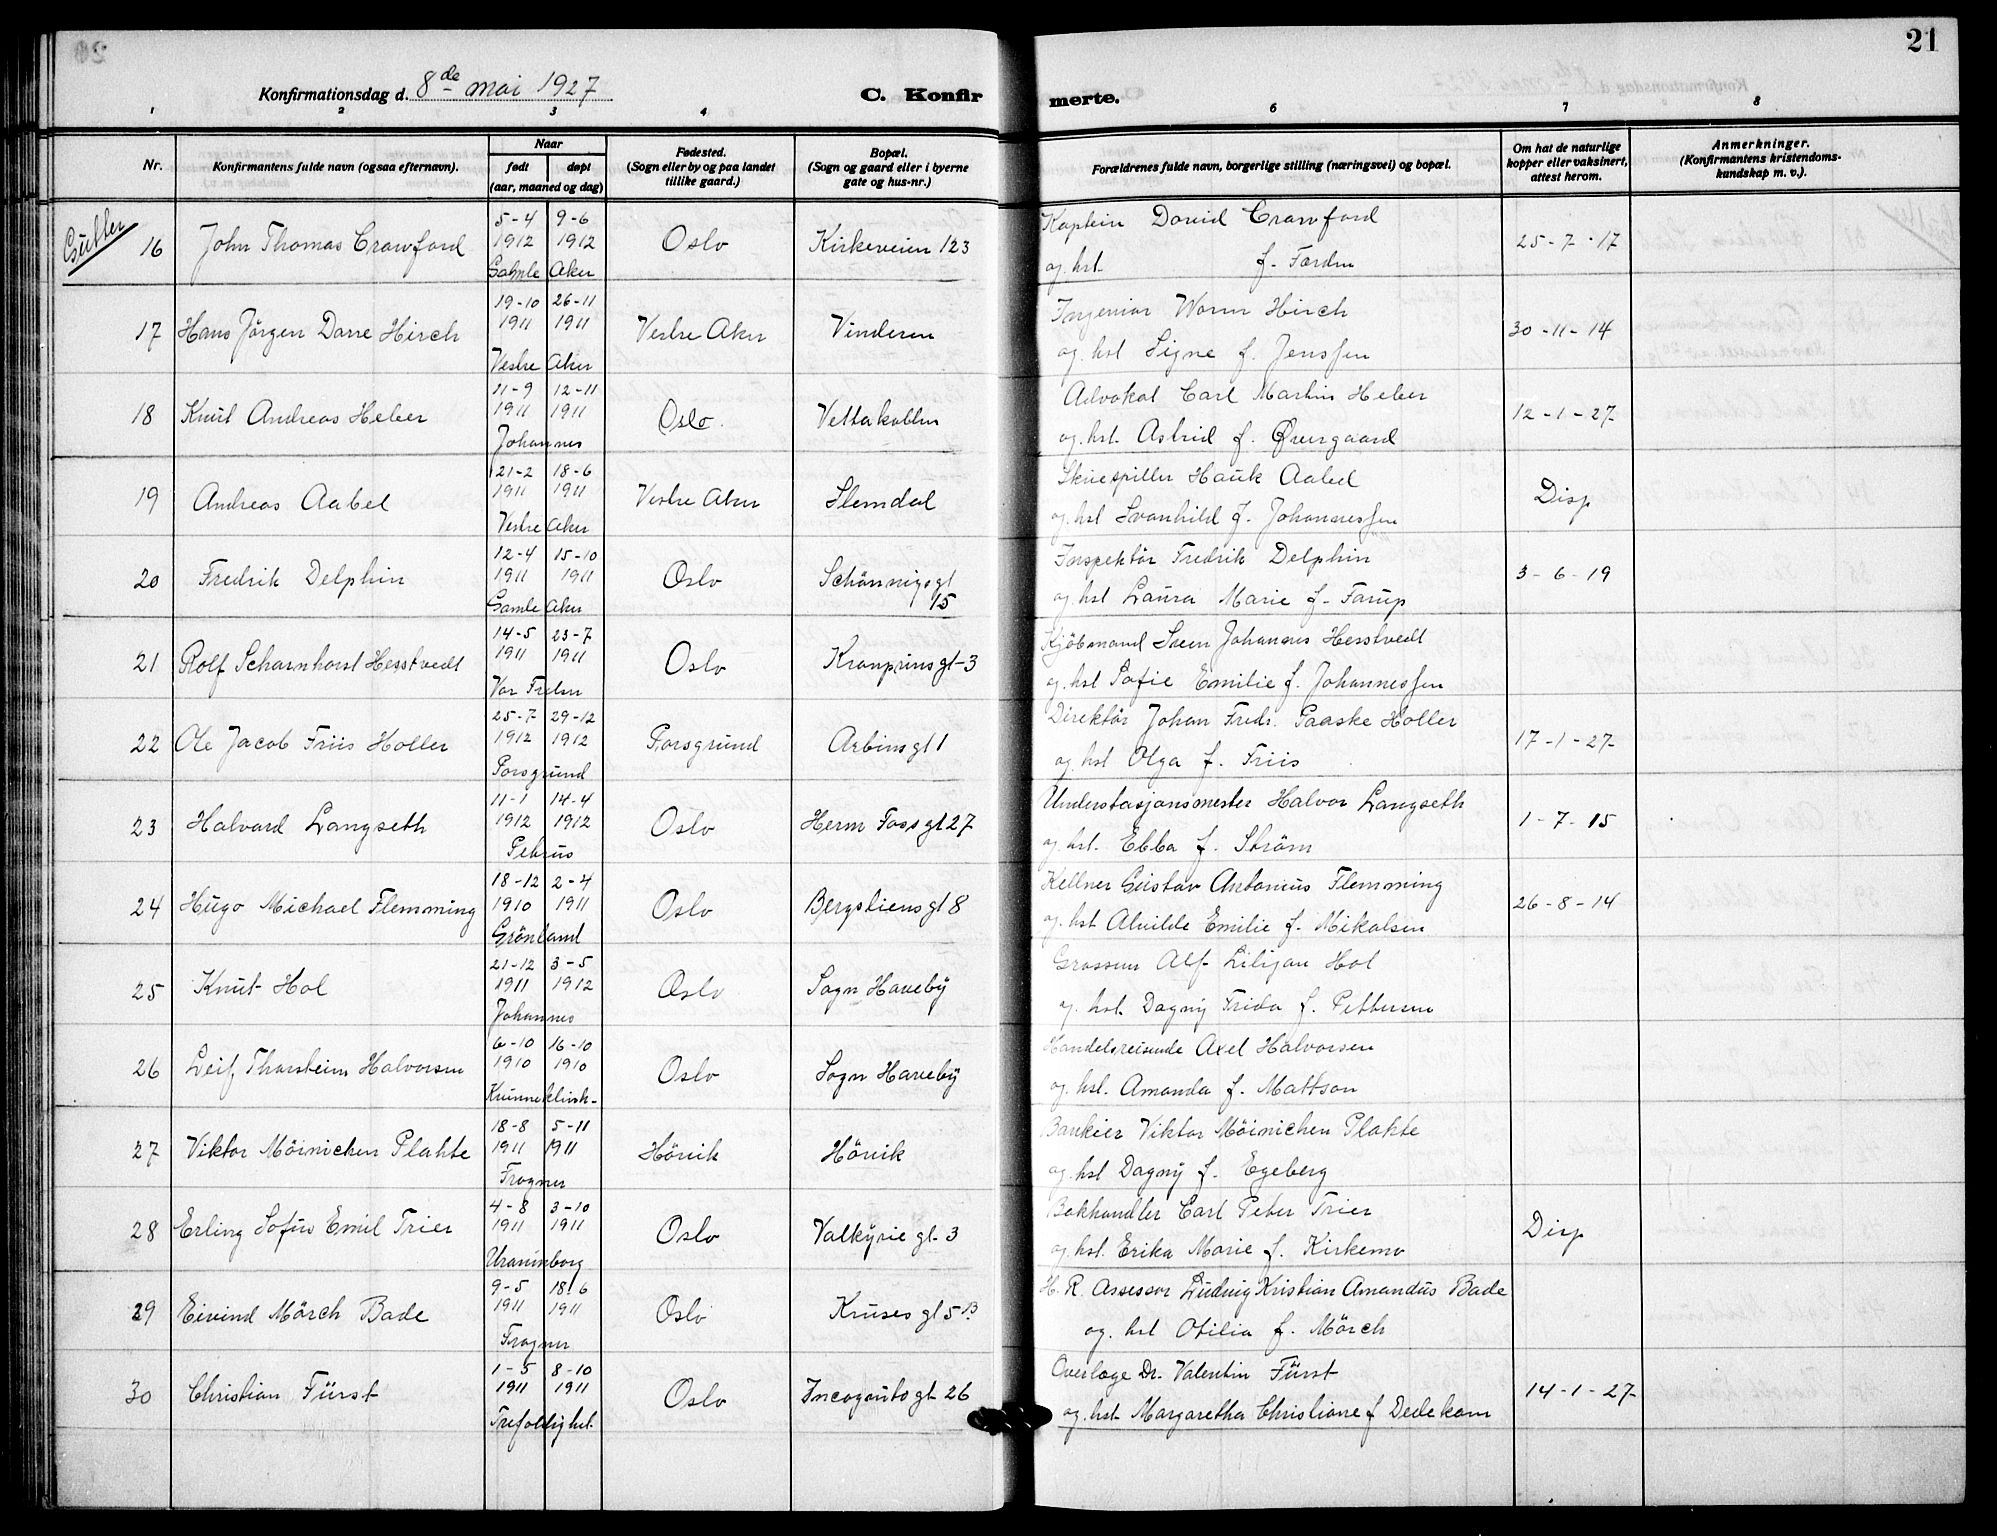 21
Konfirmationsdag d. 8de mai 1927
C. Konfir
merte.
1 2 3 4 6 7 8
Nr.
Konfirmantens fulde navn (ogsaa efternavn).
Naar
født døpt
(aar, maaned og dag)
Fødested.
(Sogn eller by og paa landet
tillike gaard.)
Bopæl.
(Sogn og gaard eller i byerne
gate og hus-nr.)
Forældrenes fulde navn, borgerlige stilling (næringsvei) og bopæl.
Om hat de naturlige
kopper eller vaksinert,
attest herom.
Anmerkninger.
(Konfirmantens kristendoms-
kundskap m. v.).
Gutter
5-4 9-6 Kaptein David Crawford
16 John Thomas Crawford 1912 1912 Oslo Kirkeveien 123 25-7-17
Gamle Aker og hst. f. Færden
19-10 26-11 Ingeniør Worm Hirch
17 Hans Jörgen Darre Hirch 1911 1911 Vestre Aker Vinderen 30-11-14
Vestre Aker og hst Signe f. Jenssen
11-9 12-11 Advokat Carl Martin Heber
18 Knut Andreas Heber 1911 1911 Oslo. Vettakollen 12-1-27
Johannes og hst. Astrid f. Övergaard
21-2 18-6 Skuespiller Hauk Aabel
19 Andreas Aabel 1911 1911 Vestre Aker Slemdal Disp
Vestre Aker og hst Svanhild f. Johannessen
12-4 15-10 Inspektör Fredrik Delphin
20 Fredrik Delphin 1911 1911 Oslo Schönnigsgt 15 3-6-19
Gamle Aker og hst Laura Marie f. Farup
14-5 23-7 Kjöbmand Sven Johannes Hesstvedt
21 Rolf Scharnhorst Hesstvedt 1911 1911 Oslo Kronprinsgt-3
Vor Frelser og hst Sofie Emilie f. Johannessen
25-7 29-12 Direktör Johan Fredr. Paaske Holler
22 Ole Jacob Friis Holler 1912 1912 Porsgrund Arbinsgt 1 17-1-27
Porsgrund og hst Olga f. Friis
11-1 14-4 Understasjonsmester Halvor Langseth
23 Halvard Langseth 1912 1912 Oslo Herm Fossgt 27 1-7-15
Petrus og hst. Ebba f. Ström
18-12 2-4 Kellner Gustav Antonius Flemming
24 Hugo Michael Flemming 1910 1911 Oslo Bergstiensgt 8 26-8-14
Grönland og hst Alvilde Emilie f. Mikalsen
21-12 3-5 Grosserer Alf Lilijan Hol
25 Knut Hol 1911 1912 Oslo Sogn Haveby
Johannes og hst. Dagny Frida f. Pettersen
6-10 16-10 Handelsreisende Axel Halvorsen
26 Leif Thorstein Halvorsen 1910 1910 Oslo Sogn Haveby
Kvinneklinik- og hst. Amanda f. Mattson
18-8 5-11 Bankier Viktor Möinichen Plahte
27 Viktor Möinichen Plahte 1911 1911 Hövik Hövik
Frogner og hst Dagny f. Egeberg
4-8 3-10 Bokhandler Carl Peter Trier
28 Erling Sofus Emil Trier 1911 1911 Oslo Valkyrie gt. 3 Disp
Uranienborg og hst. Erika Marie f. Kirkemo
9-5 18-6 H. R. Assessor Ludvig Kristian Amandus Bade
29 Eivind Mörch Bade 1911 1911 Oslo Kruses gt 5B
Frogner og. hst Otilia f. Mörch
1-5 8-10 Overlæge Dr. Valentin Fürst
30 Christian Fürst 1911 1911 Oslo Incognitogt 26 14-1-27
Trefoldighet. og. hst. Margaretha Christiane f Dedekam